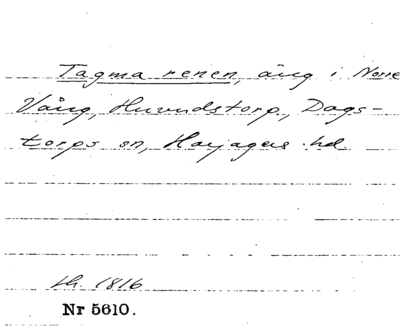 Tagma renen, äng i Norre
Vång, Huvudstorp, Dags-
torps sn, Harjagers hd
sk. 1816
Nr 5610.